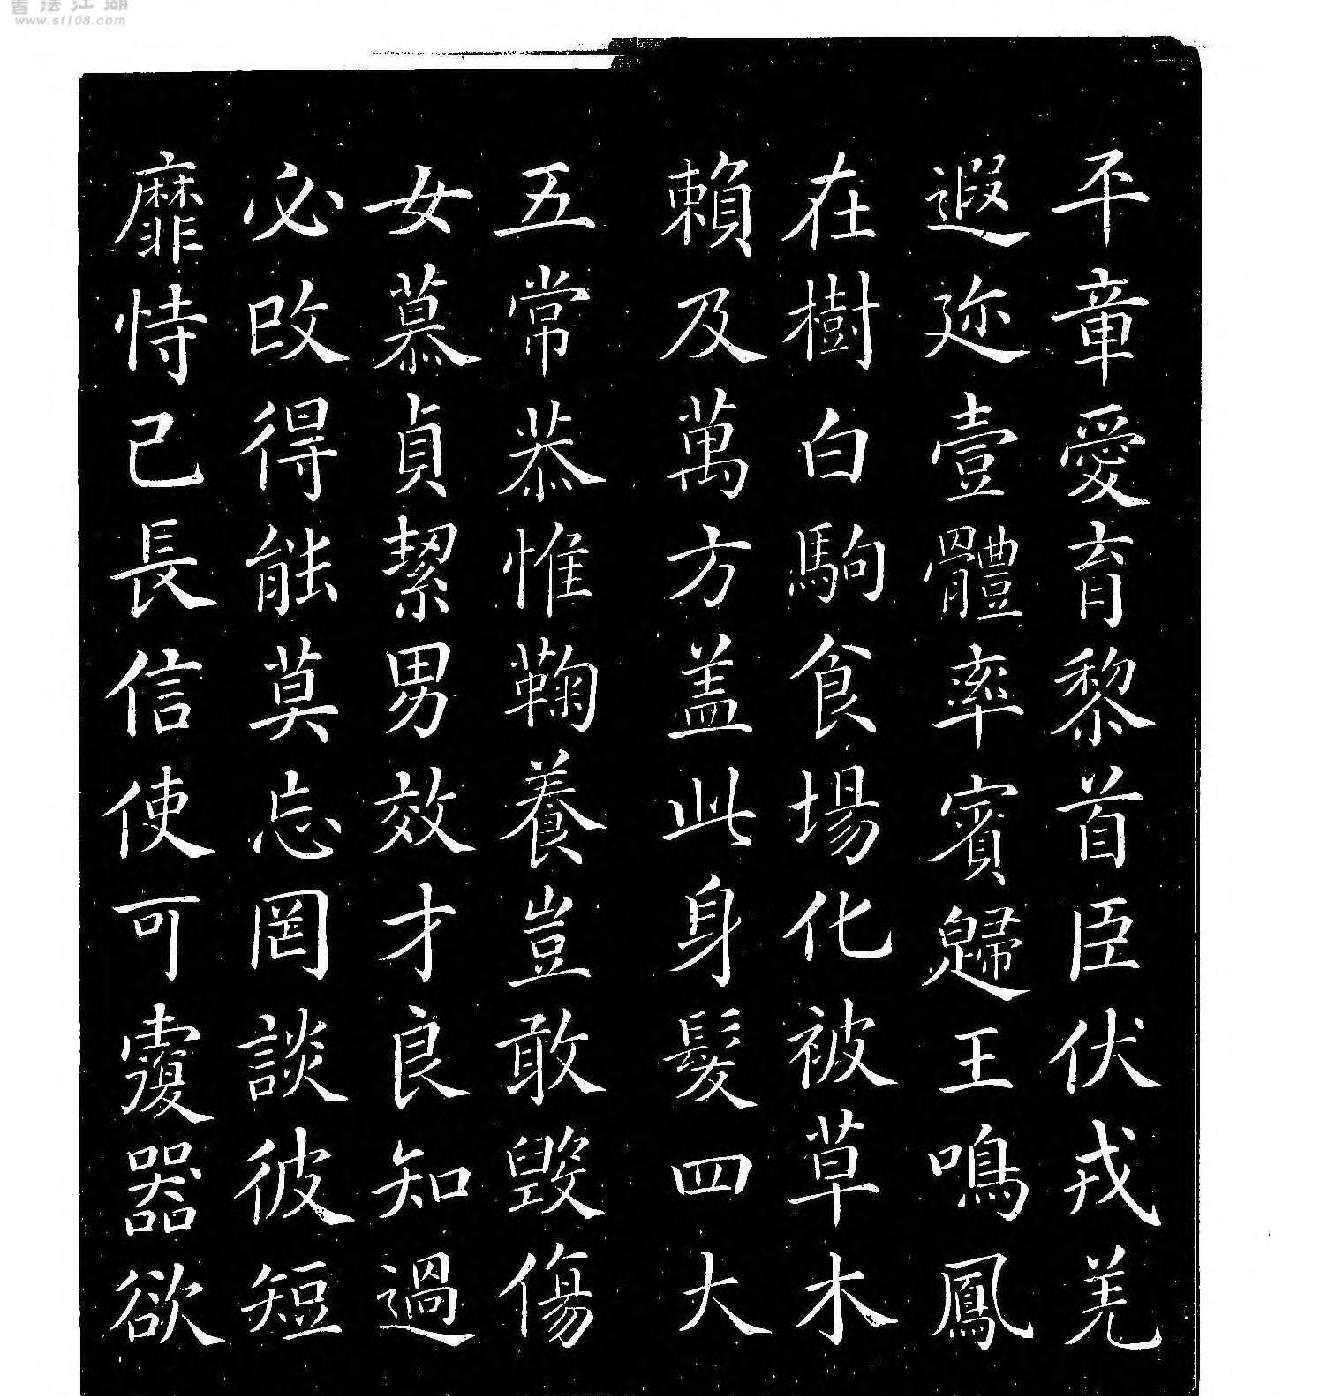 平章愛育黎首臣伏戎羌
遐迩壹體率賓歸王鳴鳳
在樹白駒食場化被草木
賴及萬方盖此身髮四大
五常恭惟鞠養豈敢毀傷
女慕貞絜男效才良知過
必改得能莫忘罔談彼短
靡恃己長信使可覆器欲
書法江湖
www.sf108.com